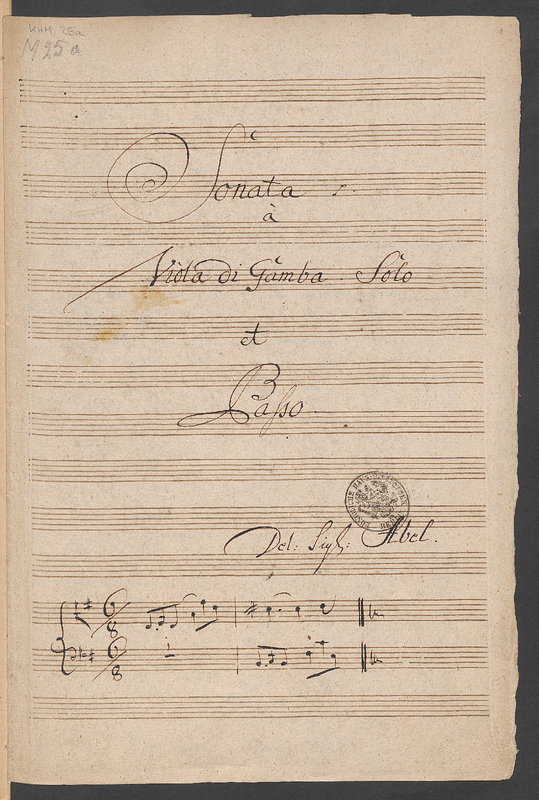 KHM 25a
M 25 a
Sonata
à
Viola di Gamba Solo
et
Basso.
Del: Sigl: Abel.
6/8
6/8